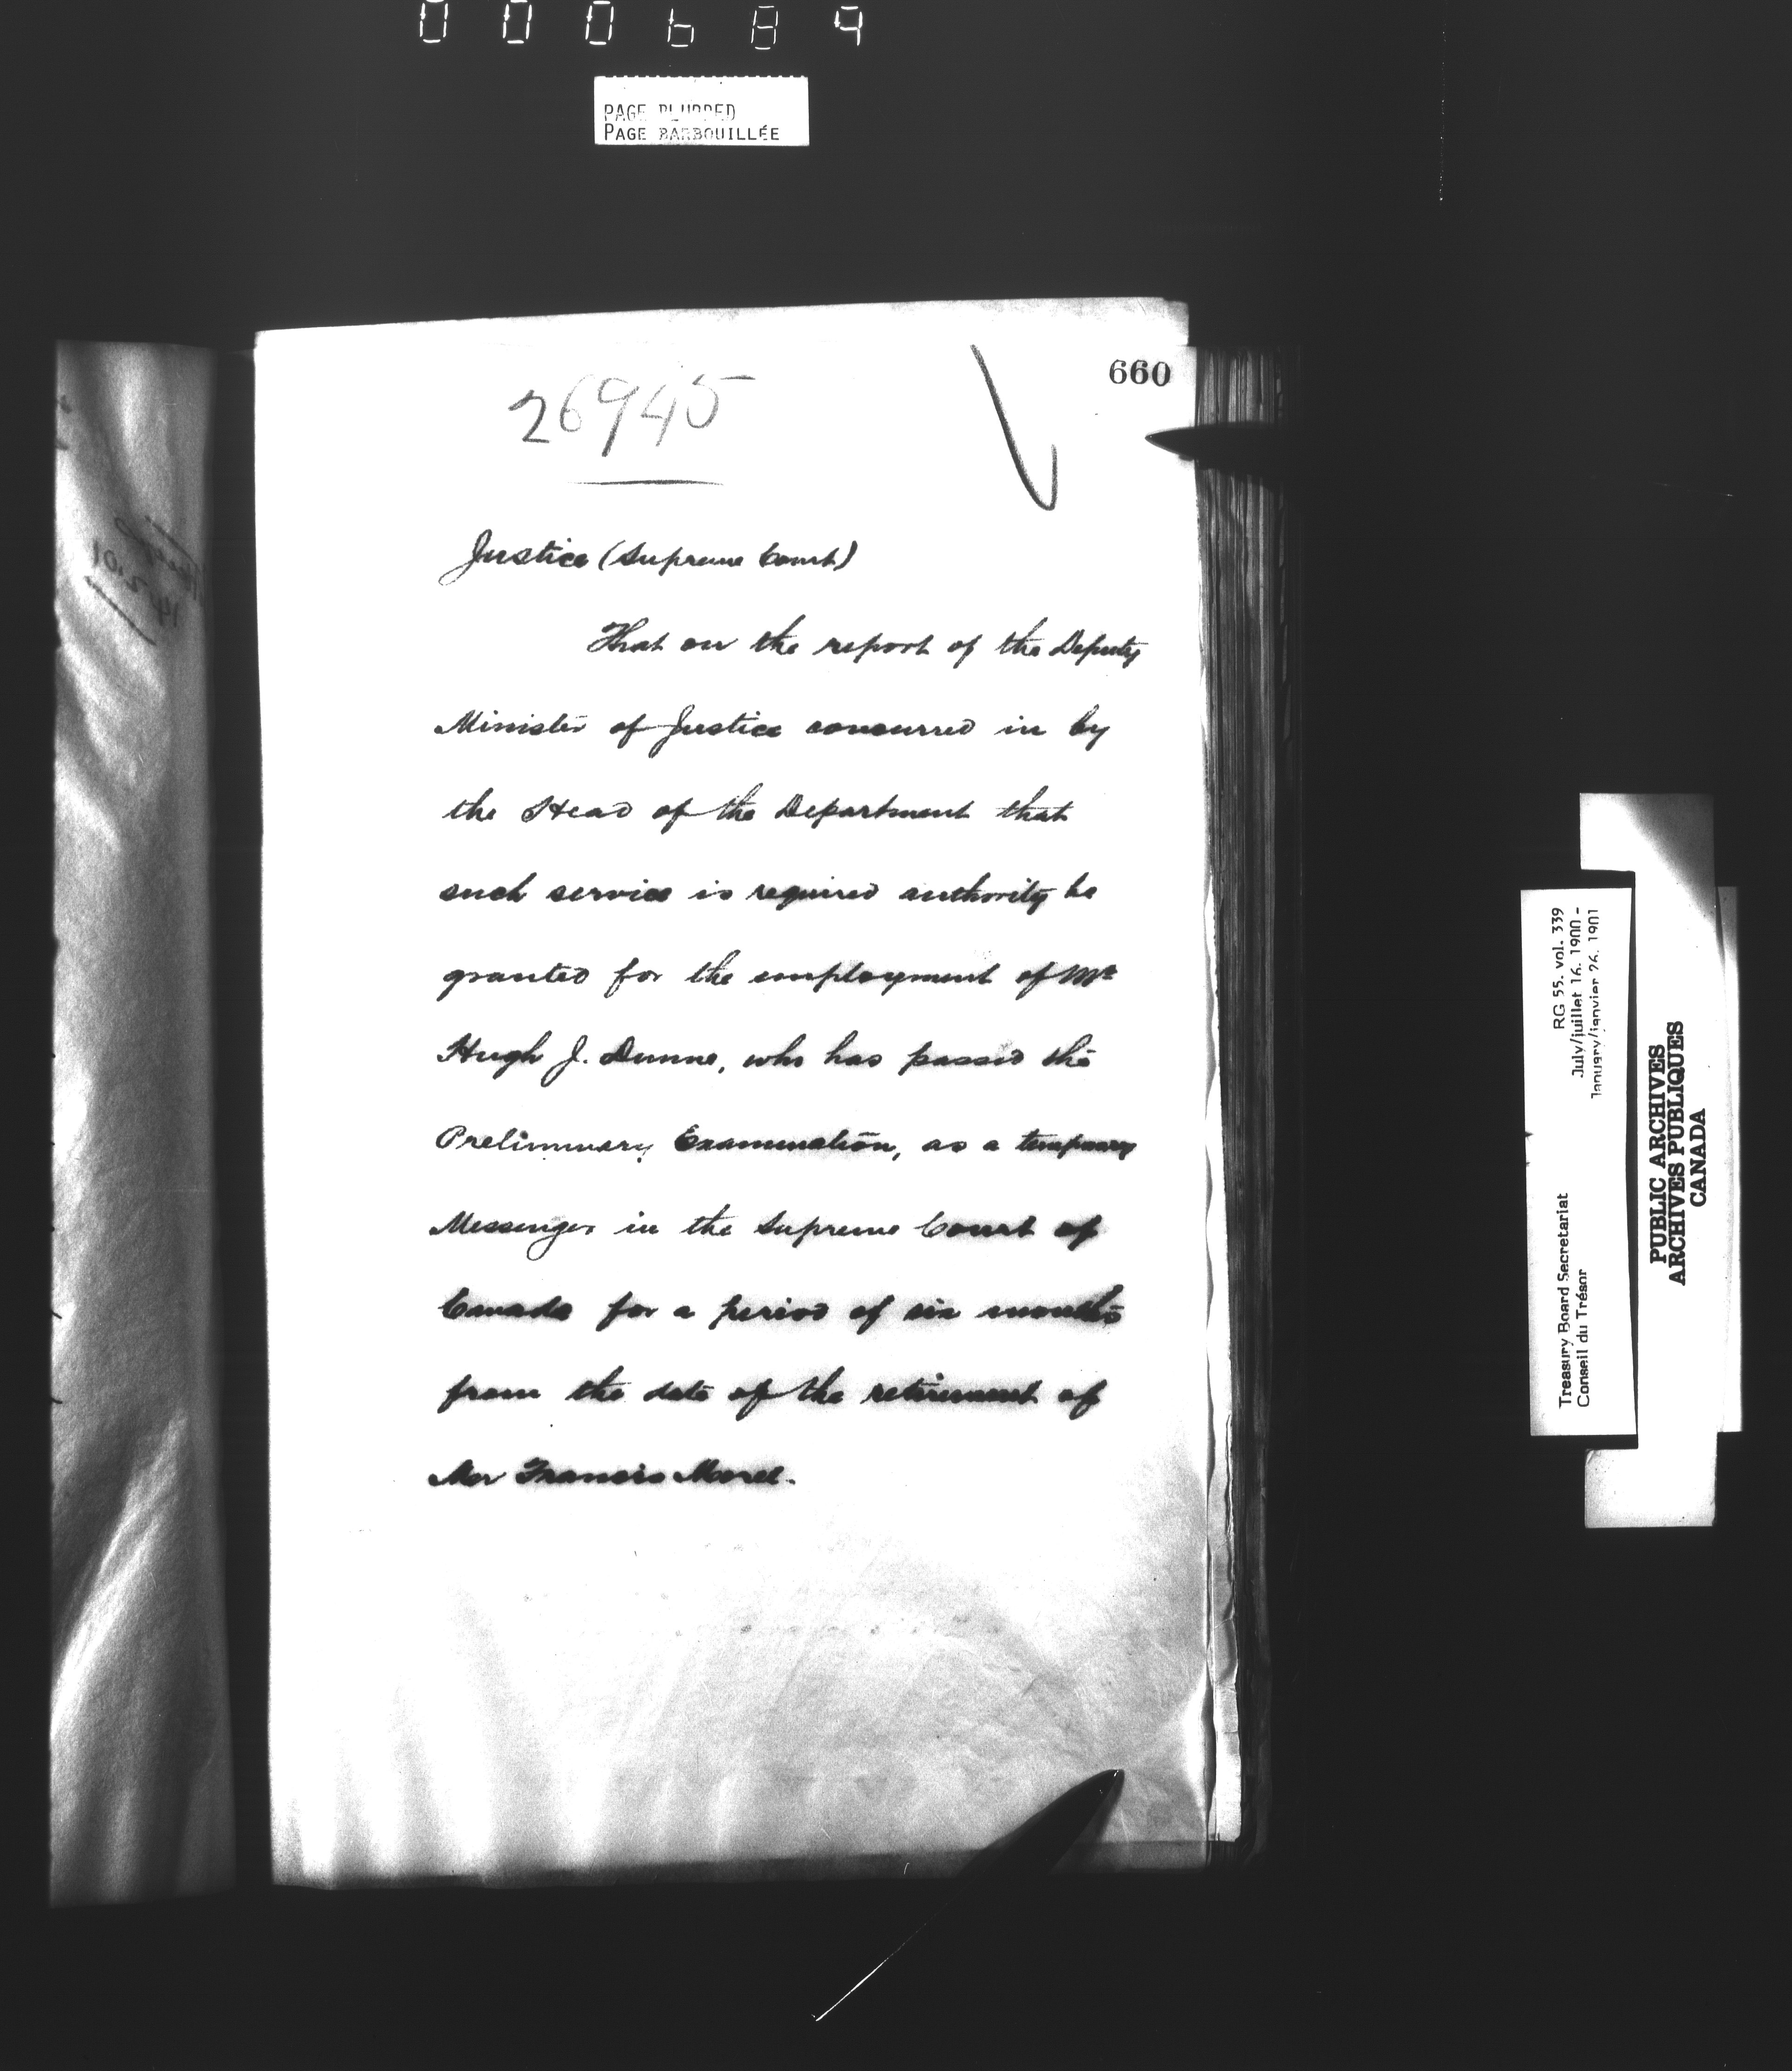 000689
PAGE BLURRED
PAGE BARBOUILLÉE
660
26945
Justice (Supreme Court)
That on the report of the Deputy
Minister of Justice concurred in by
the Head of the Department that
such service is required authority be
granted for the employment of Mr
Hugh J. Dunne, who has passed the
Preliminary Examination, as a temporary
Messenger in the Supreme Court of
Canada for a period of six months
from the date of the retirement of
Mr Francis Morel.
RG 55. vol. 339
July/juillet 16. 1900 -
January/janvier 26. 1901
Treasury Board Secretariat
Conseil du Trésor
PUBLIC ARCHIVES
ARCHIVES PUBLIQUES
CANADA